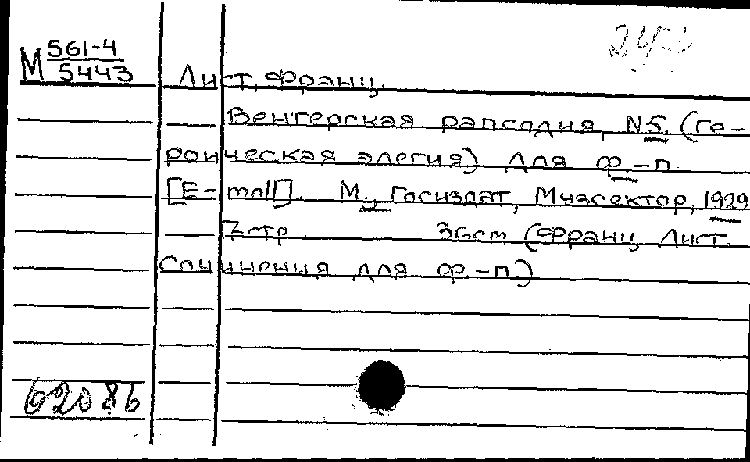 М 561-4
5443
Лист, Франц.
Венгерская рапсодия, N5. (Ге-
роическая элегия) для ф-п.
[E-moll]. М., Госиздат, Музсектор, 1929
7стр 36см (Франц Лист.
Сочинения для ф.-п.)
62086